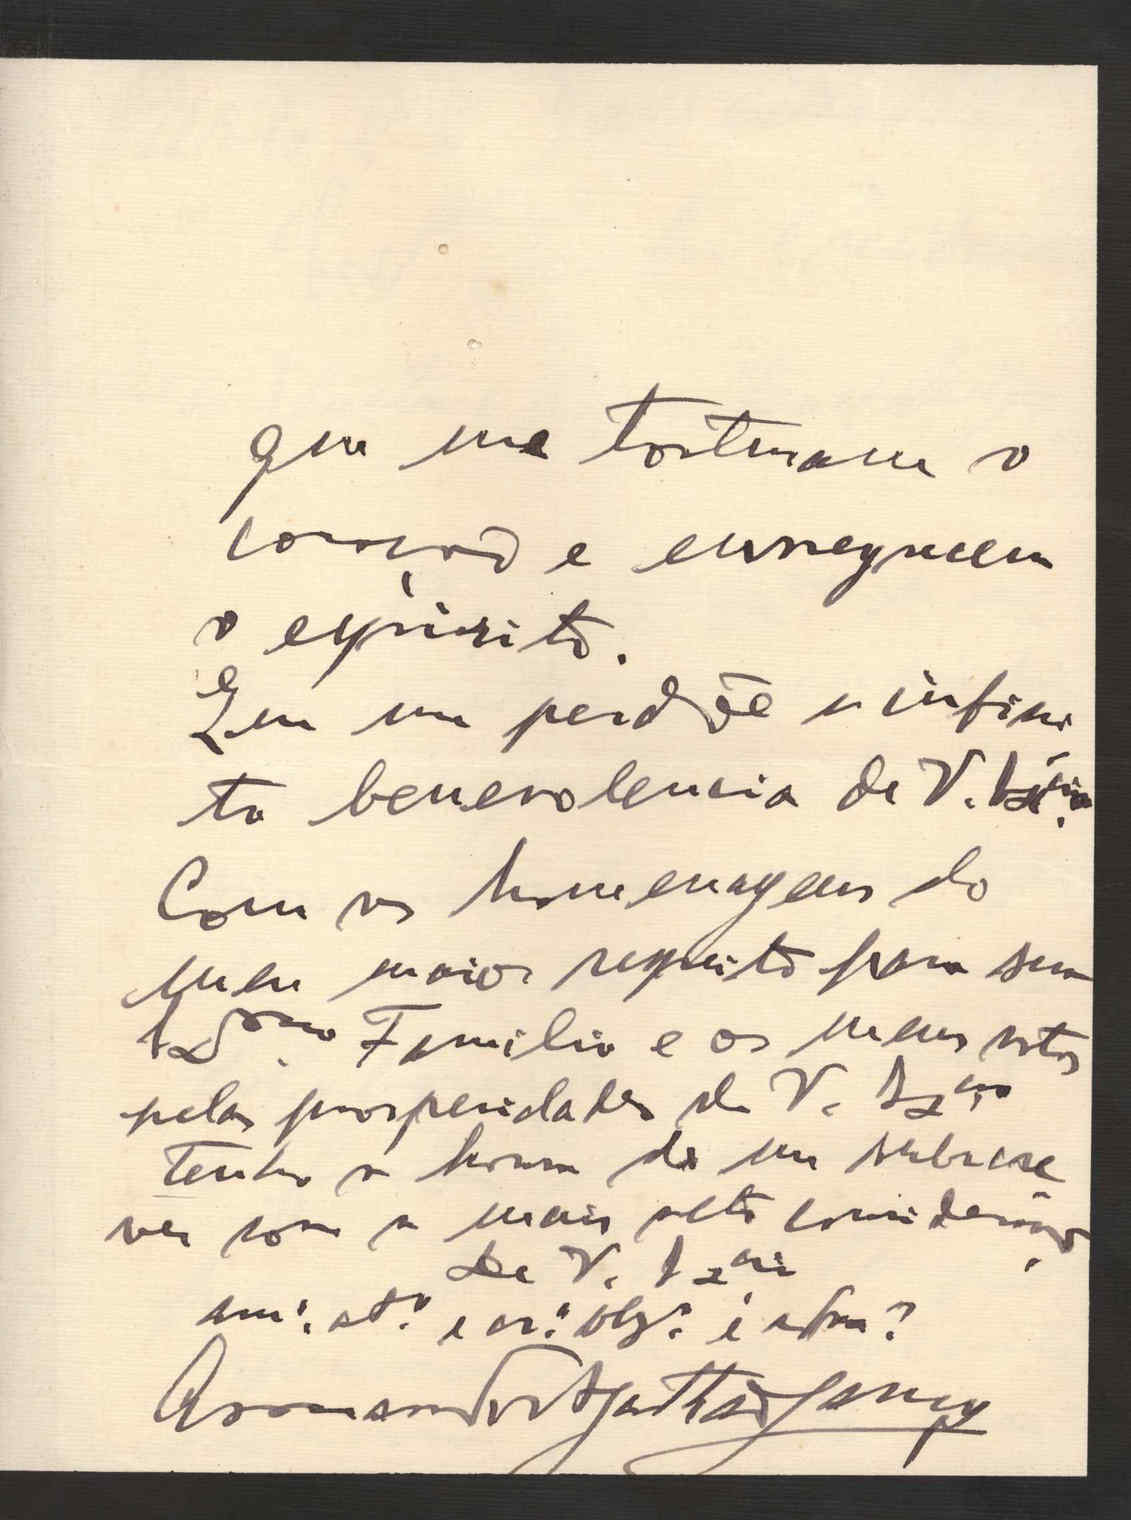 que me torturam o
coração e ennegrecem
o espirito.
Que me perdôe a infini
ta benevolencia de V. Ex.cia
Com as homenagens do
meu maior respeito para sua
Ex.ma Familia e os meus votos
pelas prosperidades de V. Ex.cia
tenho a honra de me subscre
ver com a mais alta consideração
De V. Ex.cia
am.º at.º e cr.º obg.º e adm.
Armando